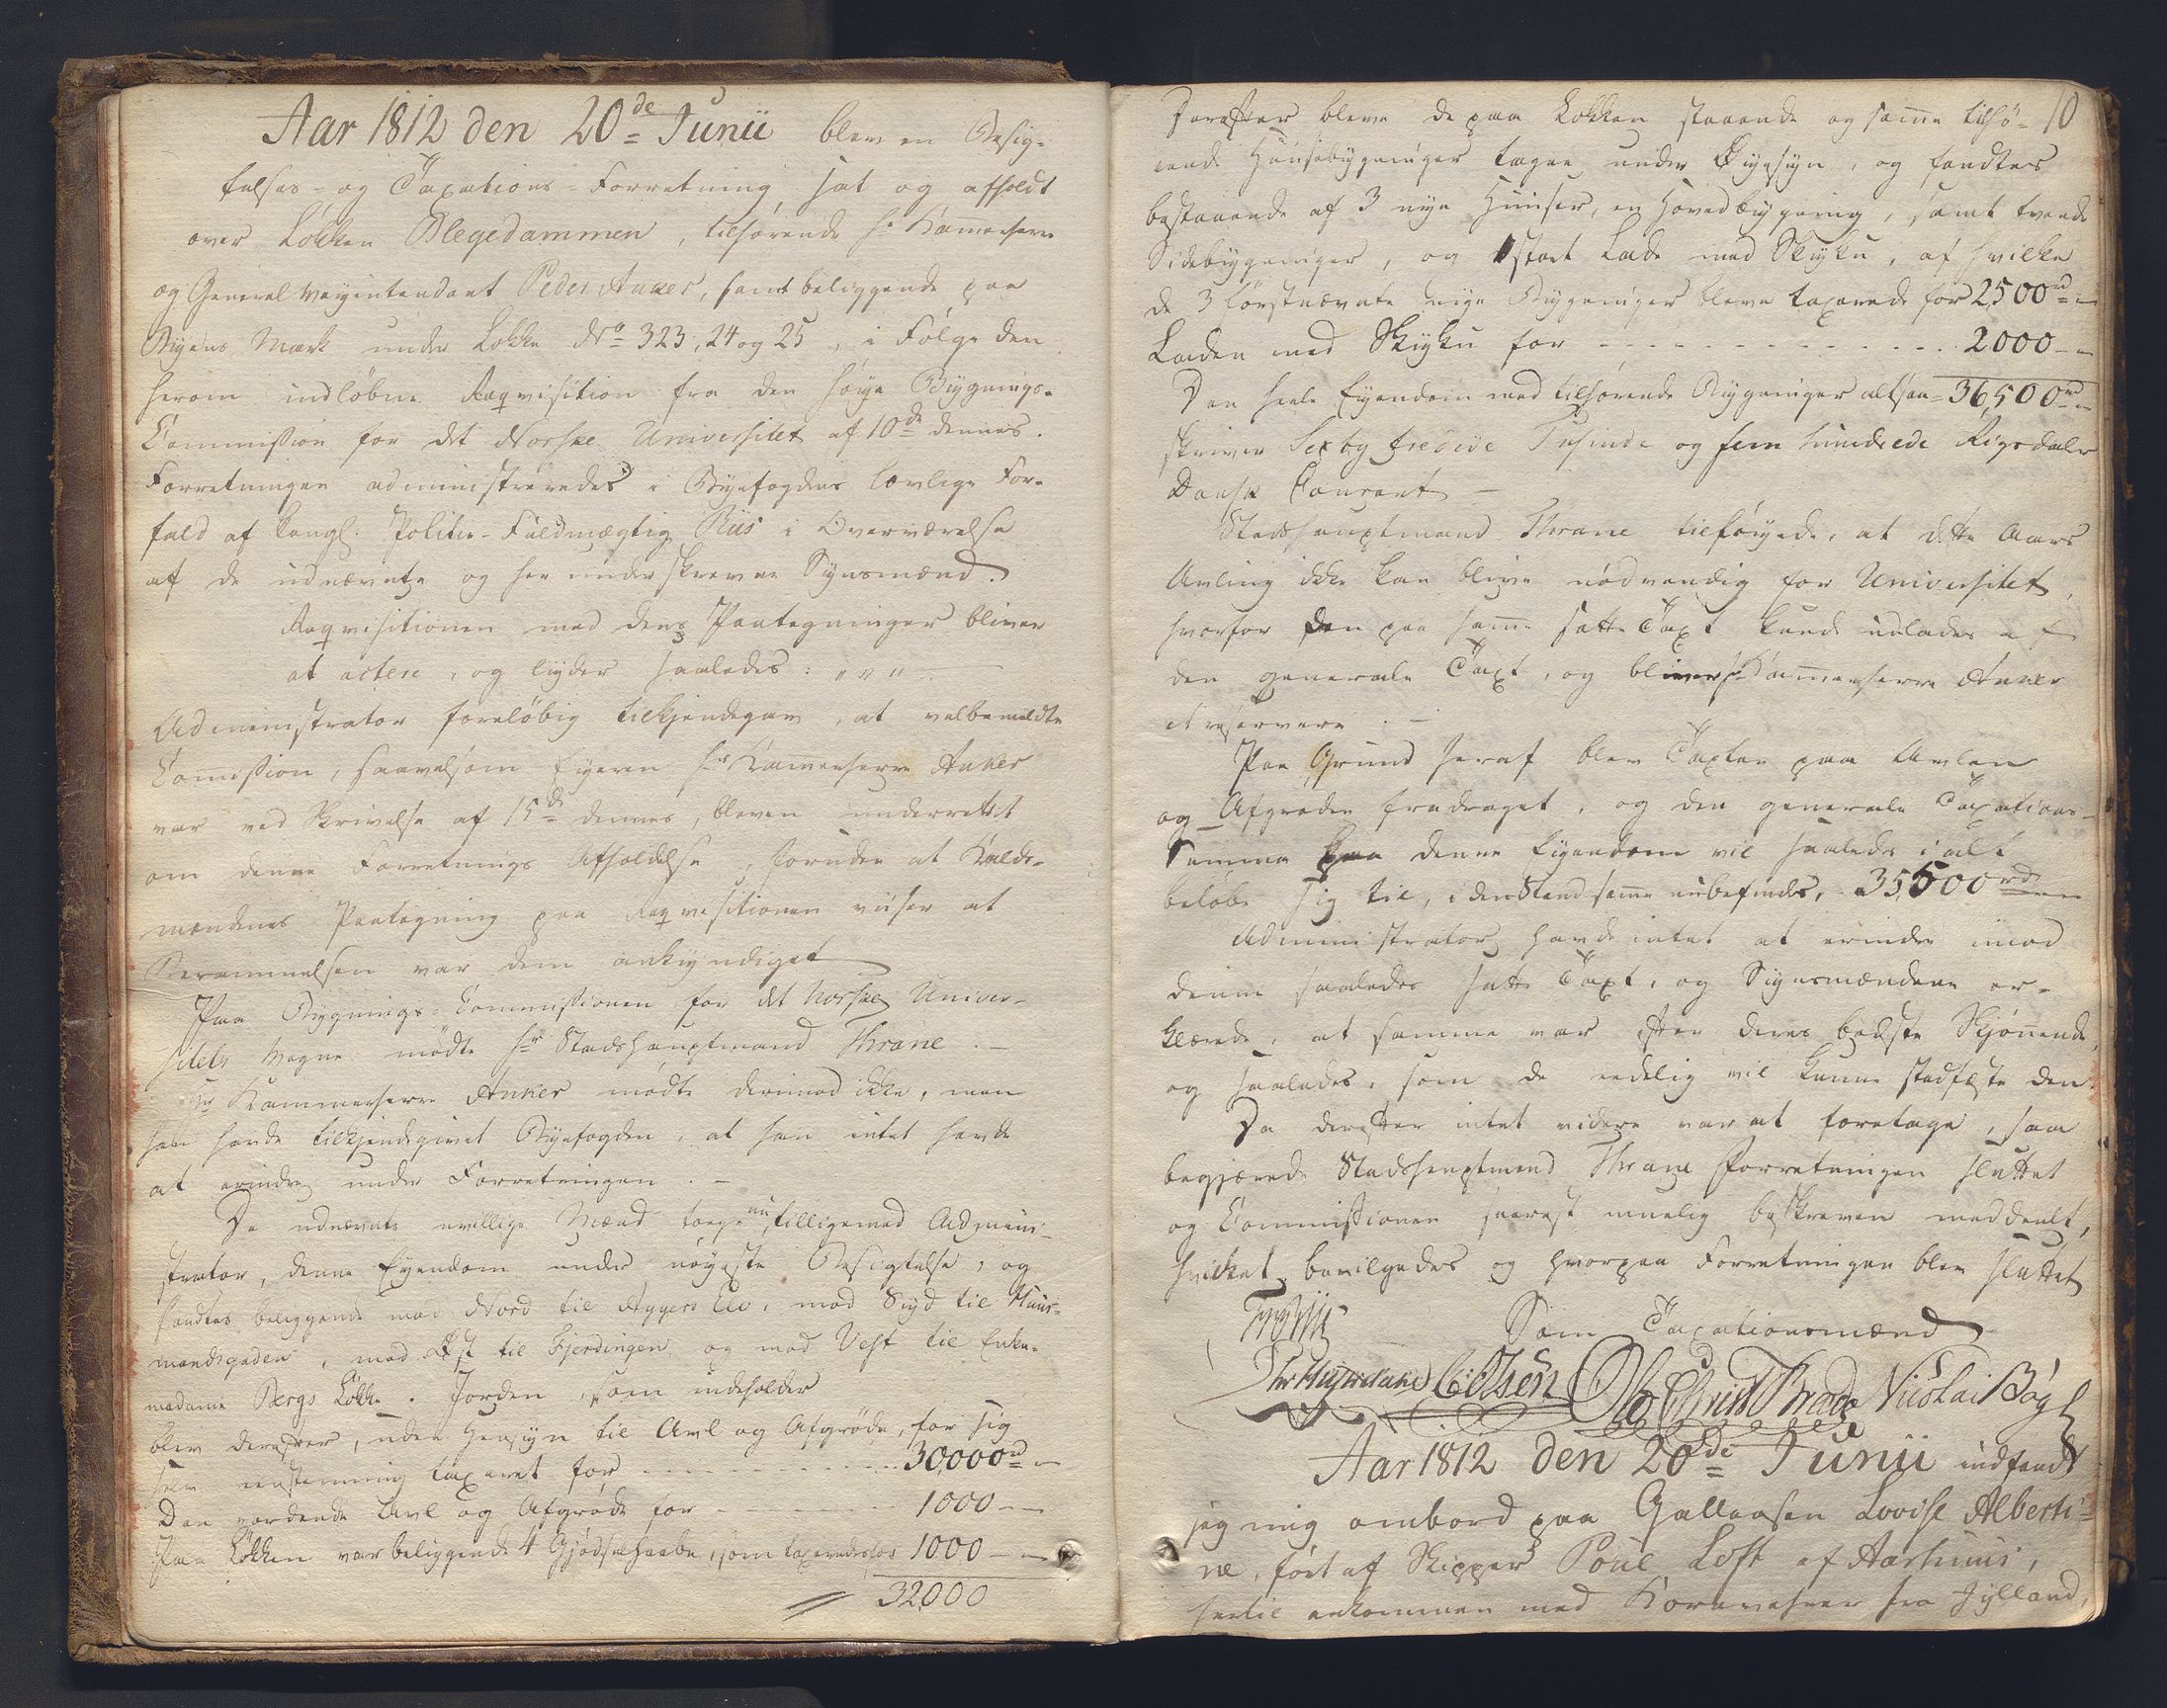 Aar 1812 den 20de Junii blev en Besig-
telses- og Taxations-Forretning, sat og afholdt
over Løkken Blegedammen, tilhørende Hr Kammerherre
og General Veyintendant Peder Anker, samt beliggende paa
Byens Mark under Løkke No 323, 24 og 25, i Følge den
herom indløbne Reqvisition fra den høye Bygnings-
Commission for det Norske Universitet af 10de dennes.
Forretningen administreredes i Byefogdens lovlige For-
fald af kongl. Politie-Fuldmægtig Riis i Overværelse
af de udnævnte og her underskrevne Synsmænd.
Reqvisitionen med dens Paategninger bliver
at actere, og lyder saaledes: „ „ „
Administrator foreløbig tilkjendegav, at velbemeldte
Commission, saavelsom Eyeren Hr Kammerherre Anker
var ved Skrivelse af 15de dennes, bleven underrettet
om denne Forretnings Afholdelse, foruden at Kalds-
mændenes Paategning paa Reqvisitionen viiser at
Berammelsen var dem ankyndiget
Paa Bygnings-Commissionen for det Norske Univer-
sitets Vegne mødte Hr Stadshauptmand Thrane. –
Hr Kammerherre Anker mødte derimod ikke, men
han havde tilkjendegivet Byefogden, at han intet havde
at erindre under Forretningen. –
De udnævnte uvillige Mænd toge nu, tilligemed Admini-
strator, denne Eyendom under nøyeste Besigtelse, og
fandtes beliggende mod Nord til Aggers Elv, mod Syd til Huus-
mandsgaden, mod Øst til Fjerdingen og mod Vest til Enke-
madame Bergs Løkke. Jorden, som indeholder
blev derefter, uden Hensyn til Avl og Afgrøde, for sig
selv eenstemmig taxeret for - - - 30,000 rd –
Den værdende Avl og Afgrøde for - - - 1000 – –
Paa Løkken var beliggende 4 Gjødselhaabe, som taxeredes for 1000 – –
32000
10
Derefter bleve de paa Løkken staaende og samme tilhø-
rende Huusebygninger tagne under Øiesyn, og fandtes
bestaaende af 3 nye Huuser, en Hovedbygning, samt tvende
Sidebygninger, og 1 stort Lade med Skykku, af hvilke
de 3 førstnævnte nye Bygninger bleve taxerede for 2500 rd –
Laden med Skykku for - - - 2000 – –
Den heele Eyendom med tilhørende Bygninger altsaa = 36,500 rd –
skriver Sex og tredive Tusinde og fem hundrede Rigsdaler
Dansk Courant –
Stadshauptmand Thrane tilføyede, at dette Aars
Avling ikke kan blive nødvendig for Universitet,
hvorfor den paa samme satte Taxt kunde udlades af
den generale Taxt, og bliver Hr Kammerherre Anker
at reservere. –
Paa Grund heraf blev Taxten paa Avlen
og Afgrøden fradraget, og den generale Taxations-
Summa paa denne Eyendom vil saaledes i alt
beløbe sig til, i den Stand samme nu befindes, 35,500 rd
Administrator havde intet at erindre imod
denne saaledes satte Taxt, og Synsmændene er-
klærede, at samme var efter deres bedste Skjønende,
og saaledes, som de eedelig vil kunne stadfæste den.
Da derefter intet videre var at foretage, saa
begjærede Stadshauptmand Thrane Forretningen sluttet
og Commissionen snarest muelig beskreven meddeelt,
hvilket bevilgedes og hvorpaa Forretningen blev sluttet
Som Taxationsmænd
C: Olsen Nicolai Bøgh
Aar 1812 den 20de Junii indfandt
jeg mig ombord paa Galleasen Lovise Alberti-
ne, ført af Skipper Poul Loft af Aarhuus,
hertil ankommen med Kornvahrer fra Jylland,